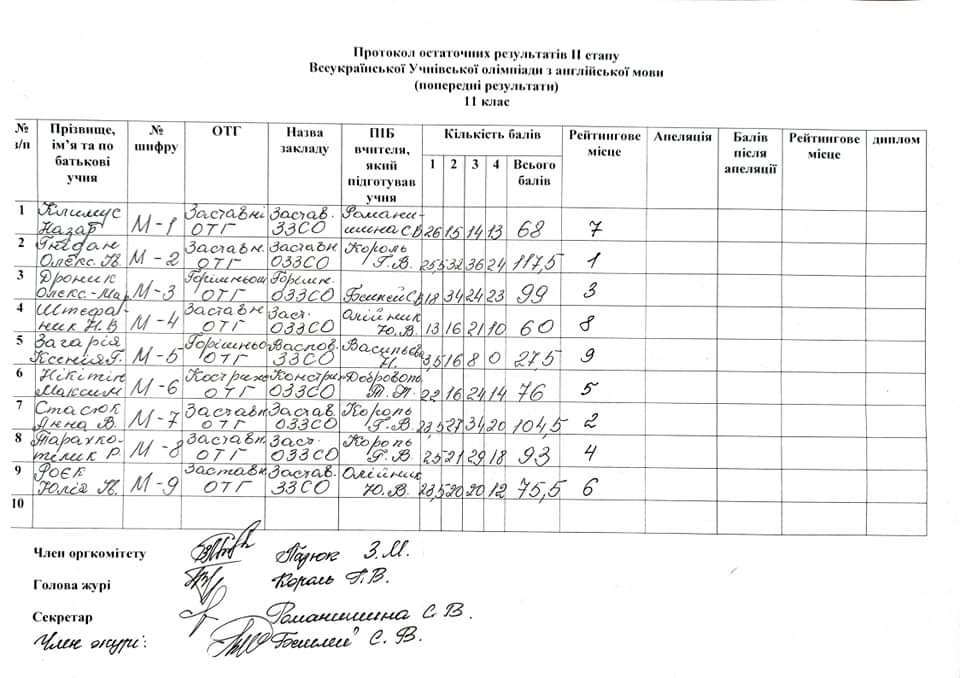 Протокол остаточних результатів ІІ етапу
Всеукраїнської Учнівської олімпіади з англійської мови
(попередні результати)
11 клас
№ з/п Прізвище, ім'я та по батькові учня № шифру ОТГ Назва закладу ПІБ вчителя, який підготував учня Кількість балів 1 2 3 4 Всього балів Рейтингове місце Апеляція Балів після апеляції Рейтингове місце диплом
1 Климус Назар М-1 Заставні ОТГ Застав. ЗЗСО Романи-шина С.В. 26 15 14 13 68 7
2 Олекс. М-2 Заставн. ОТГ Заставн ОЗЗСО Король Г.В. 25,5 32 36 24 117,5 1
3 Дроник Олекс.-Мар. М-3 ОТГ Горішн. ОЗЗСО 18 34 24 23 99 3
4 Штефа-ник Н.В М-4 Заставн ОТГ Заст. ОЗЗСО Олійник Ю.В. 13 16 21 10 60 8
5 Загарія Ксенія Г. М-5 Горішньо ОТГ ЗЗСО Васильєва Н. 3,5 16 8 0 27,5 9
6 Нікітін Максим М-6 ОТГ ОЗЗСО 22 16 24 14 76 5
7 Стасюк Анна В. М-7 Заставн ОТГ Застав. ОЗЗСО Король Г.В. 23,5 27 34 20 104,5 2
8 Р. М-8 Заставн. ОТГ Заст. ОЗЗСО Король Г.В. 25 21 29 18 93 4
9 Роєк Юлія М-9 Заставн ОТГ Застав. ЗЗСО Олійник Ю.В. 23,5 20 20 12 75,5 6
10
Член оргкомітету З.М.
Голова журі Король Г.В.
Секретар Романишина С.В.
Член журі: С.В.